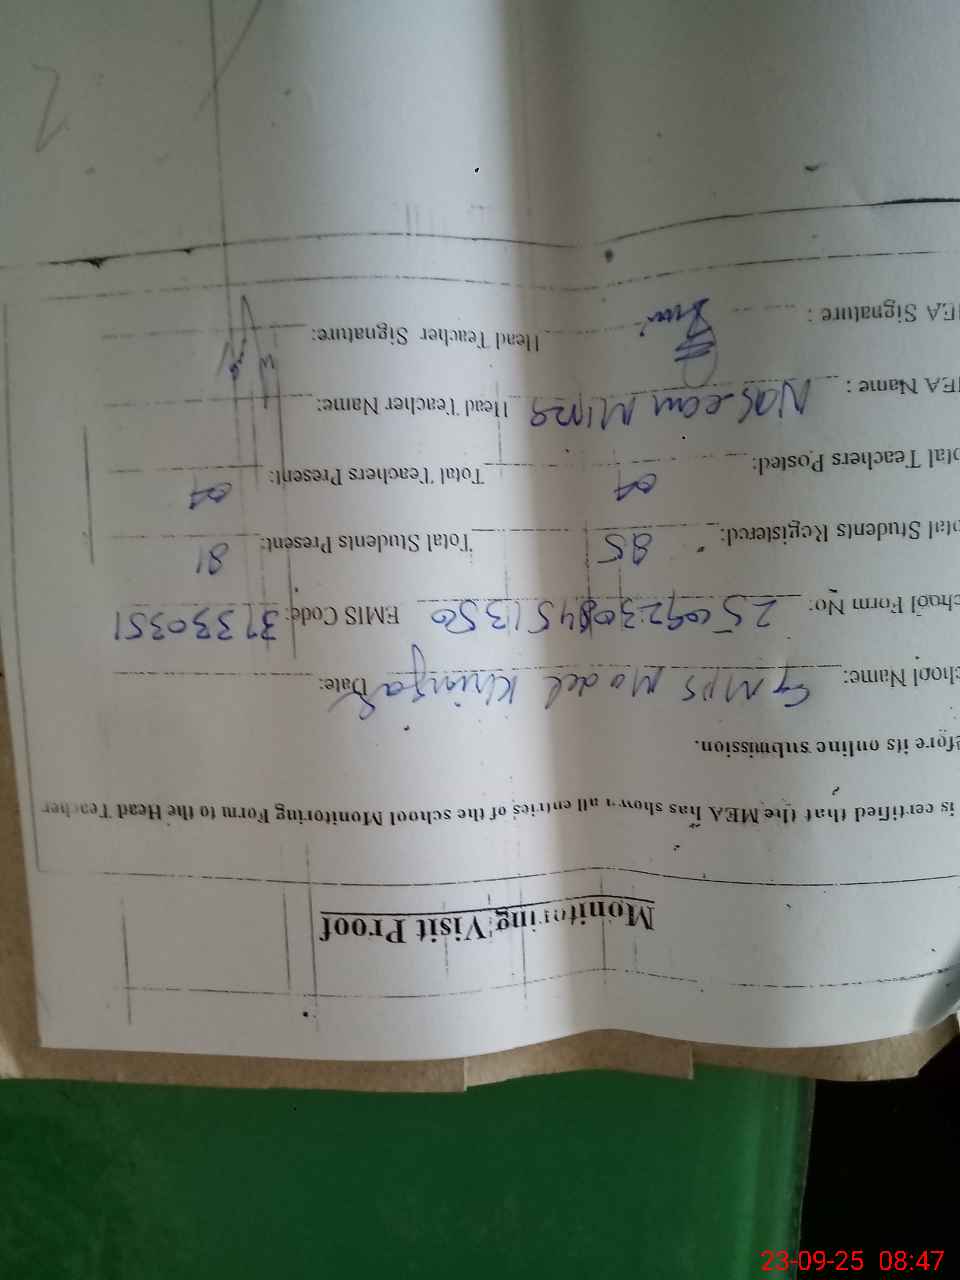 Monitoring Visit Proof
is certified that the MEA has shown all entries of the school Monitoring Form to the Head Teacher
efore its online submission.
chool Name: GMPS Model Khinga Date:
chool Form No: 25092308451350 EMIS Code: 31330351
otal Students Registered: 85 Total Students Present: 81
otal Teachers Posted: 04 Total Teachers Present: 04
EA Name: Naseem Head Teacher Name:
EA Signature: Head Teacher Signature:
23-09-25 08:47